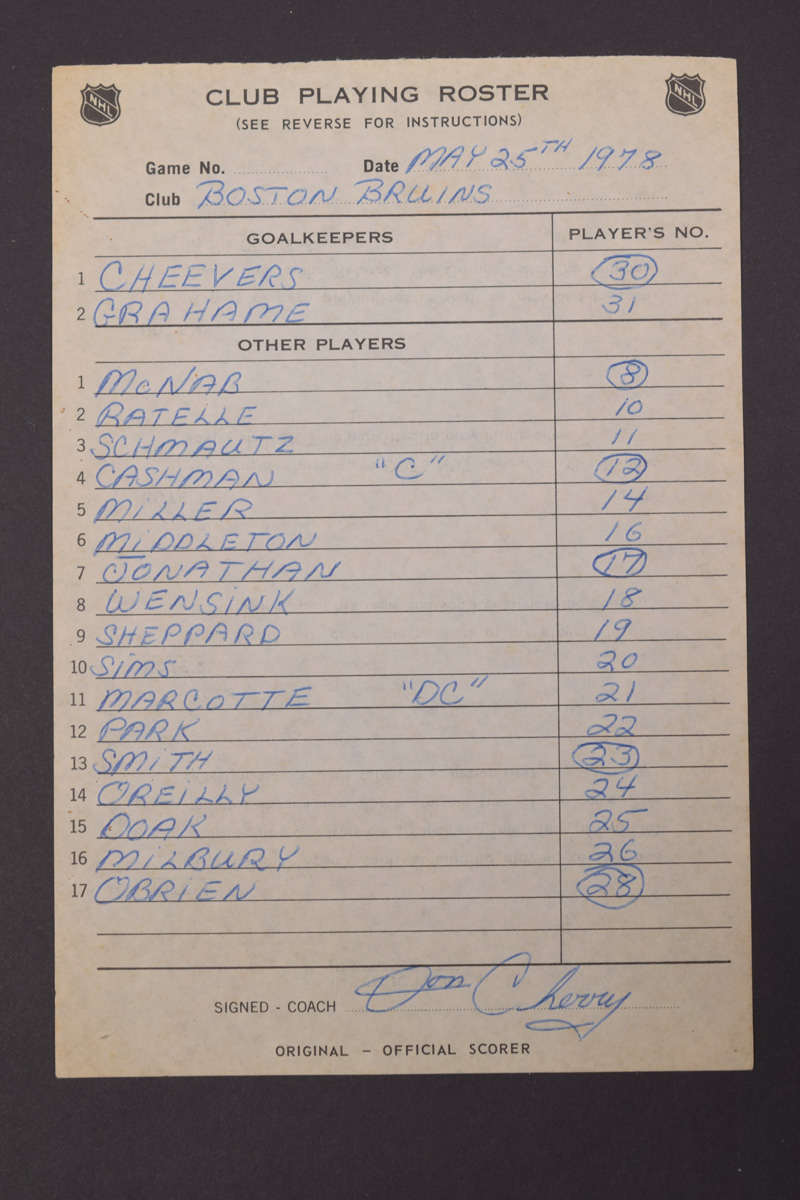 NHL NHL
CLUB PLAYING ROSTER
(SEE REVERSE FOR INSTRUCTIONS)
Game No. Date MAY 25TH 1978
Club BOSTON BRUINS
GOALKEEPERS PLAYER'S NO.
1 CHEEVERS 30
2 GRAHAME 31
OTHER PLAYERS
1 McNAB 8
2 RATELLE 10
3 SCHMAUTZ 11
4 CASHMAN "C" 12
5 MiLLER 14
6 MiDDLETON 16
7 JONATHAN 17
8 WENSINK 18
9 SHEPPARD 19
10 SiMS 20
11 MARCOTTE "DC" 21
12 PARK 22
13 SMiTH 23
14 OREILLY 24
15 DOAK 25
16 MiLBURY 26
17 OBRIEN 28
SIGNED - COACH Don Cherry
ORIGINAL – OFFICIAL SCORER